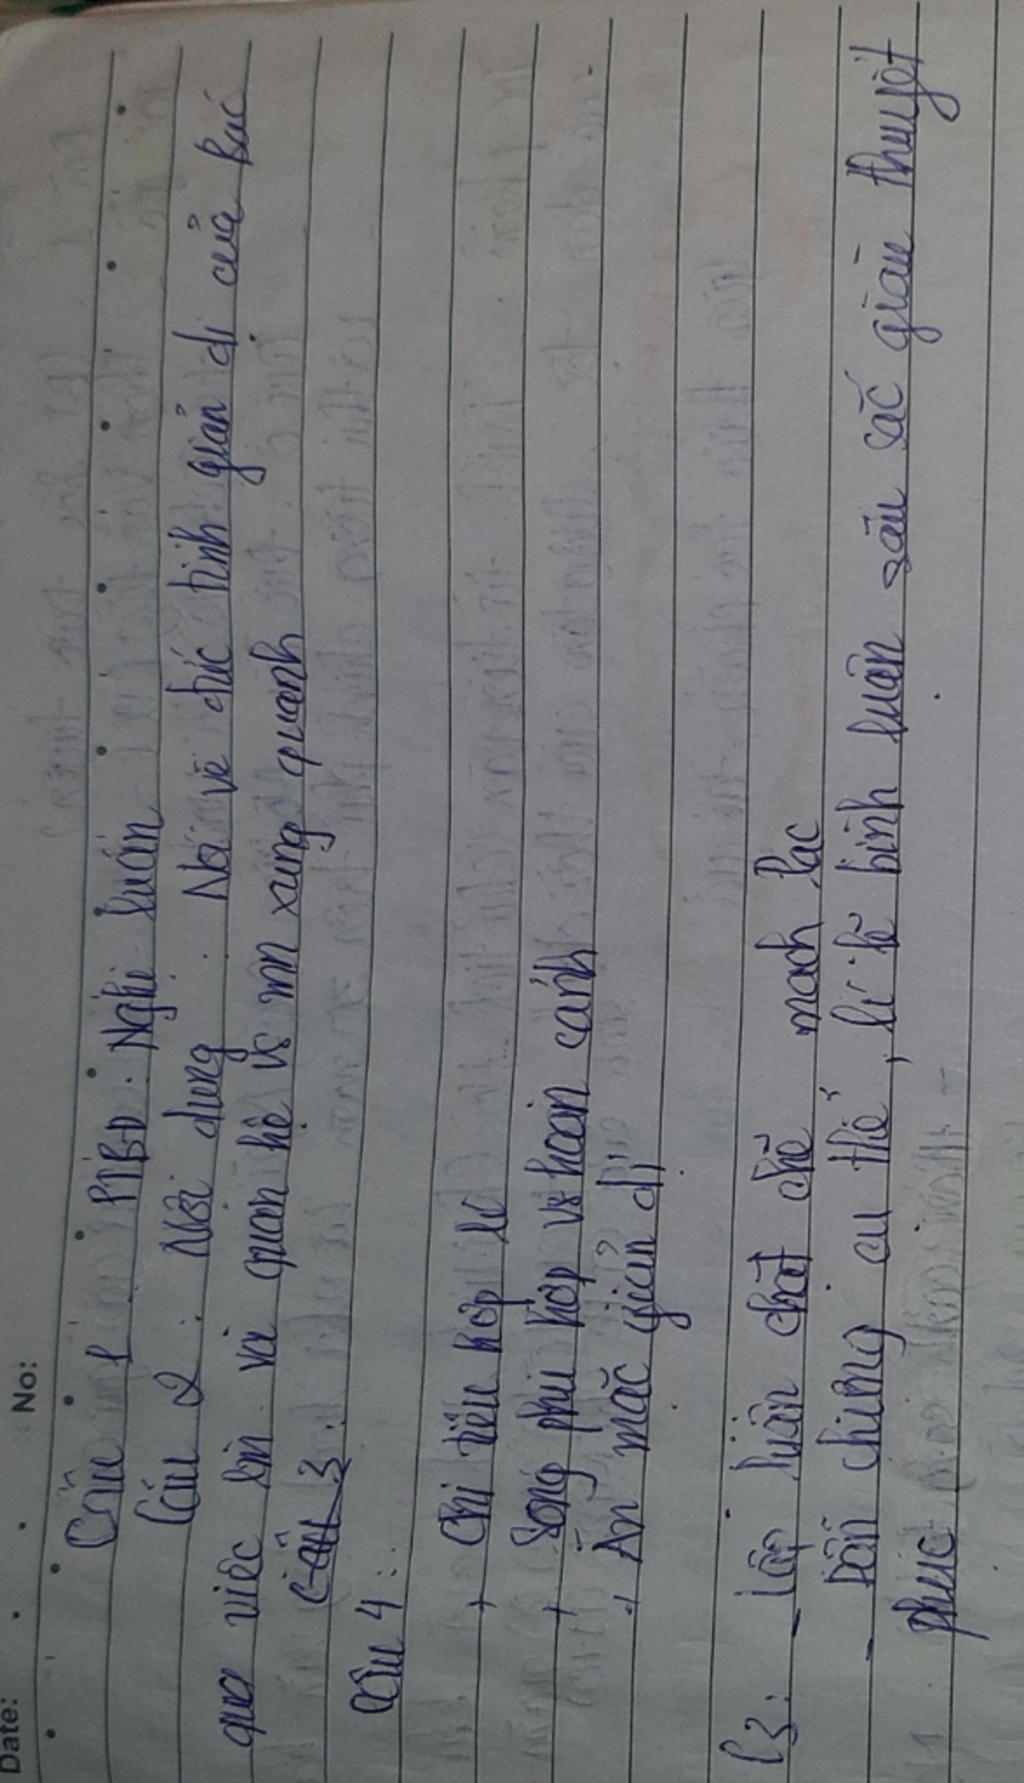 Date: No:
Câu 1 PTBĐ: Nghị luận
Câu 2: Nội dung: Nói về đức tính giản dị của Bác
qua việc làm và quan hệ vs mn xung quanh
Câu 3:
Câu 4:
+ Chi tiêu hợp lí
+ Sống phù hợp vs hoàn cảnh
+ Ăn mặc giản dị
C3: - Lập luận chặt chẽ mạch lạc
- Dẫn chứng cụ thể, lí lẽ bình luận sâu sắc giàu thuyết
phục